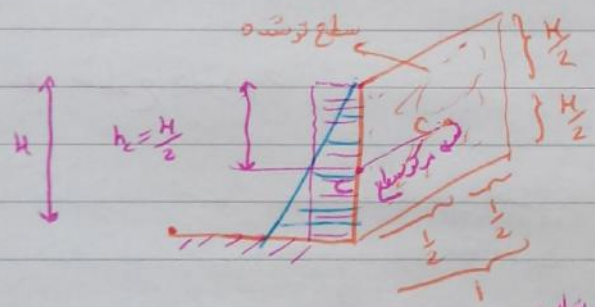 سطح تر شده
H/2
H/2
H
h_c = H/2
C
C
مرکز سطح
1/2
1/2
1